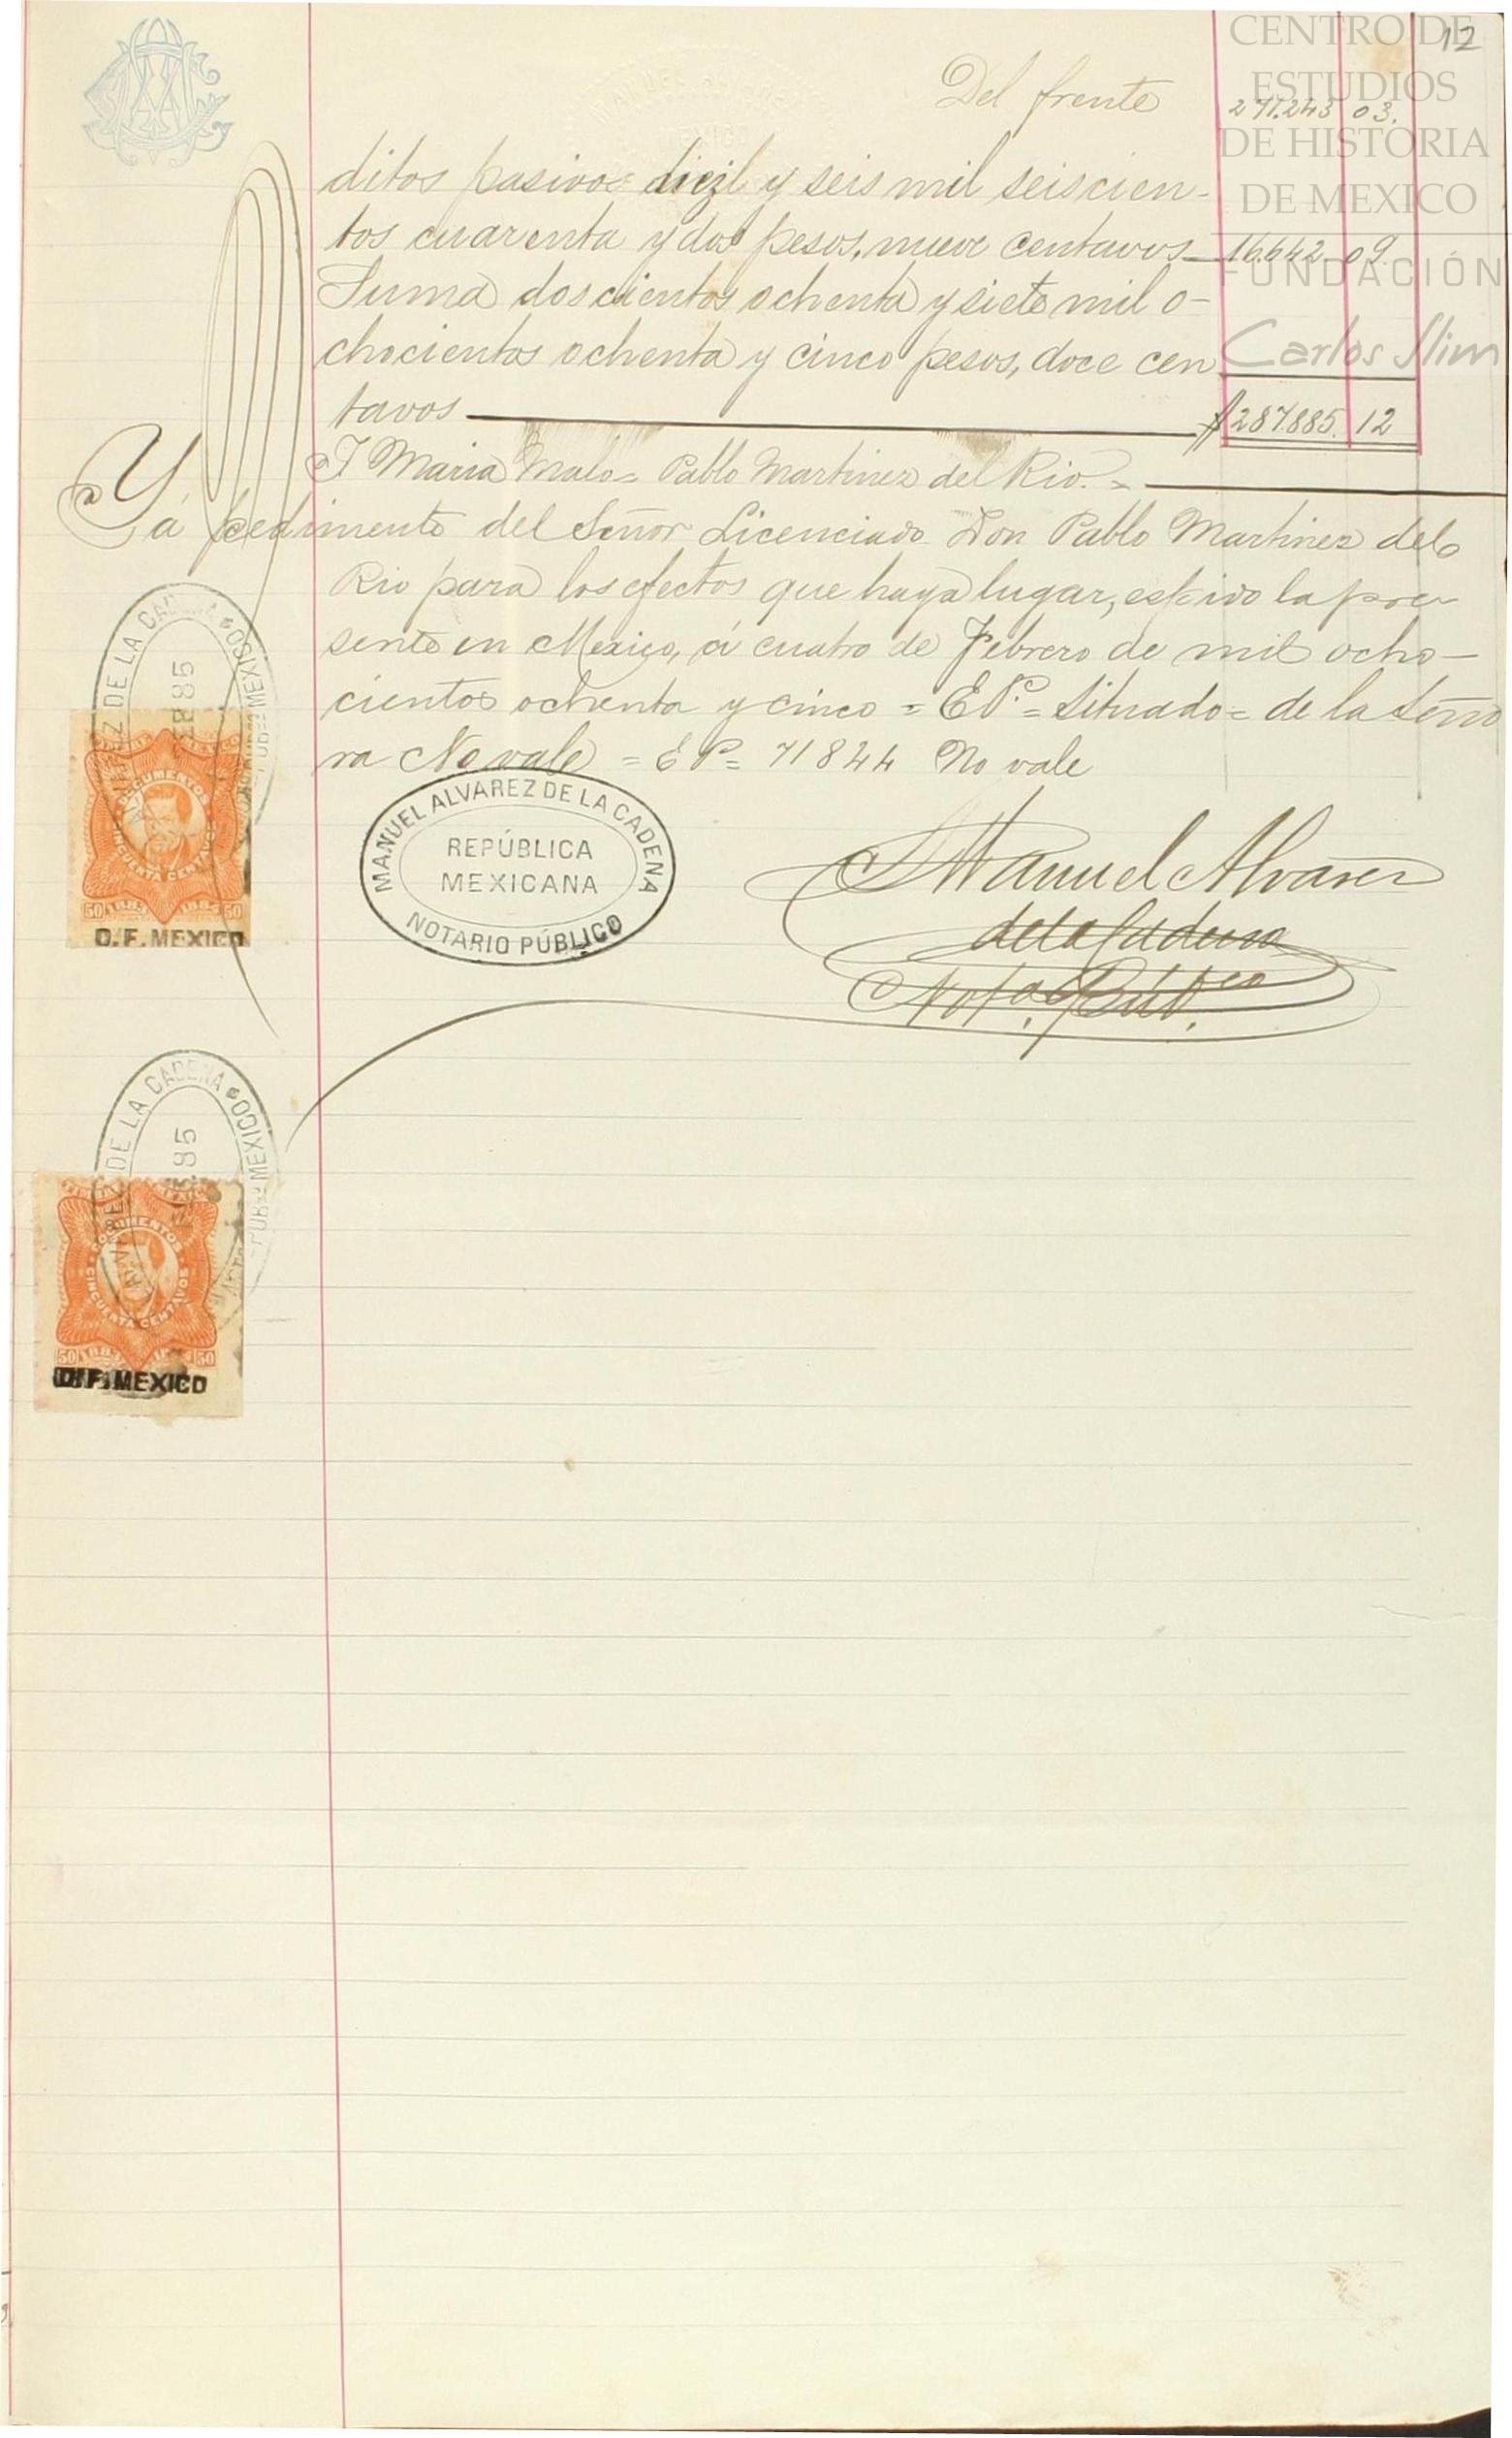 12
CENTRO DE
ESTUDIOS
DE HISTORIA
DE MEXICO
FUNDACIÓN
Carlos Slim
Del frente 271.243 03.
ditos pasivos diez y seis mil seiscien-
tos cuarenta y dos pesos, nueve centavos 16.642 09.
Suma doscientos ochenta y siete mil o-
chocientos ochenta y cinco pesos, doce cen
tavos $287.885. 12
Maria Malo = Pablo Martinez del Rio. =
Y á pedimento del Señor Licenciado Don Pablo Martinez del
Rio para los efectos que haya lugar, espido la pre
sente en Mexico, á cuatro de Febrero de mil ocho-
cientos ochenta y cinco = EP. = Situado = de la Seño
ra No vale = EP = 71824 No vale
MANUEL ALVAREZ DE LA CADENA
REPÚBLICA
MEXICANA
NOTARIO PÚBLICO
Manuel Alvarez
de la Cadena
Not. Púb.co
ALVAREZ DE LA CADENA
MEXICO
DOCUMENTOS
CINCUENTA CENTAVOS
50 50
D.F. MEXICO
DE LA CADENA
MEXICO
DOCUMENTOS
CINCUENTA CENTAVOS
50 50
D.F. MEXICO